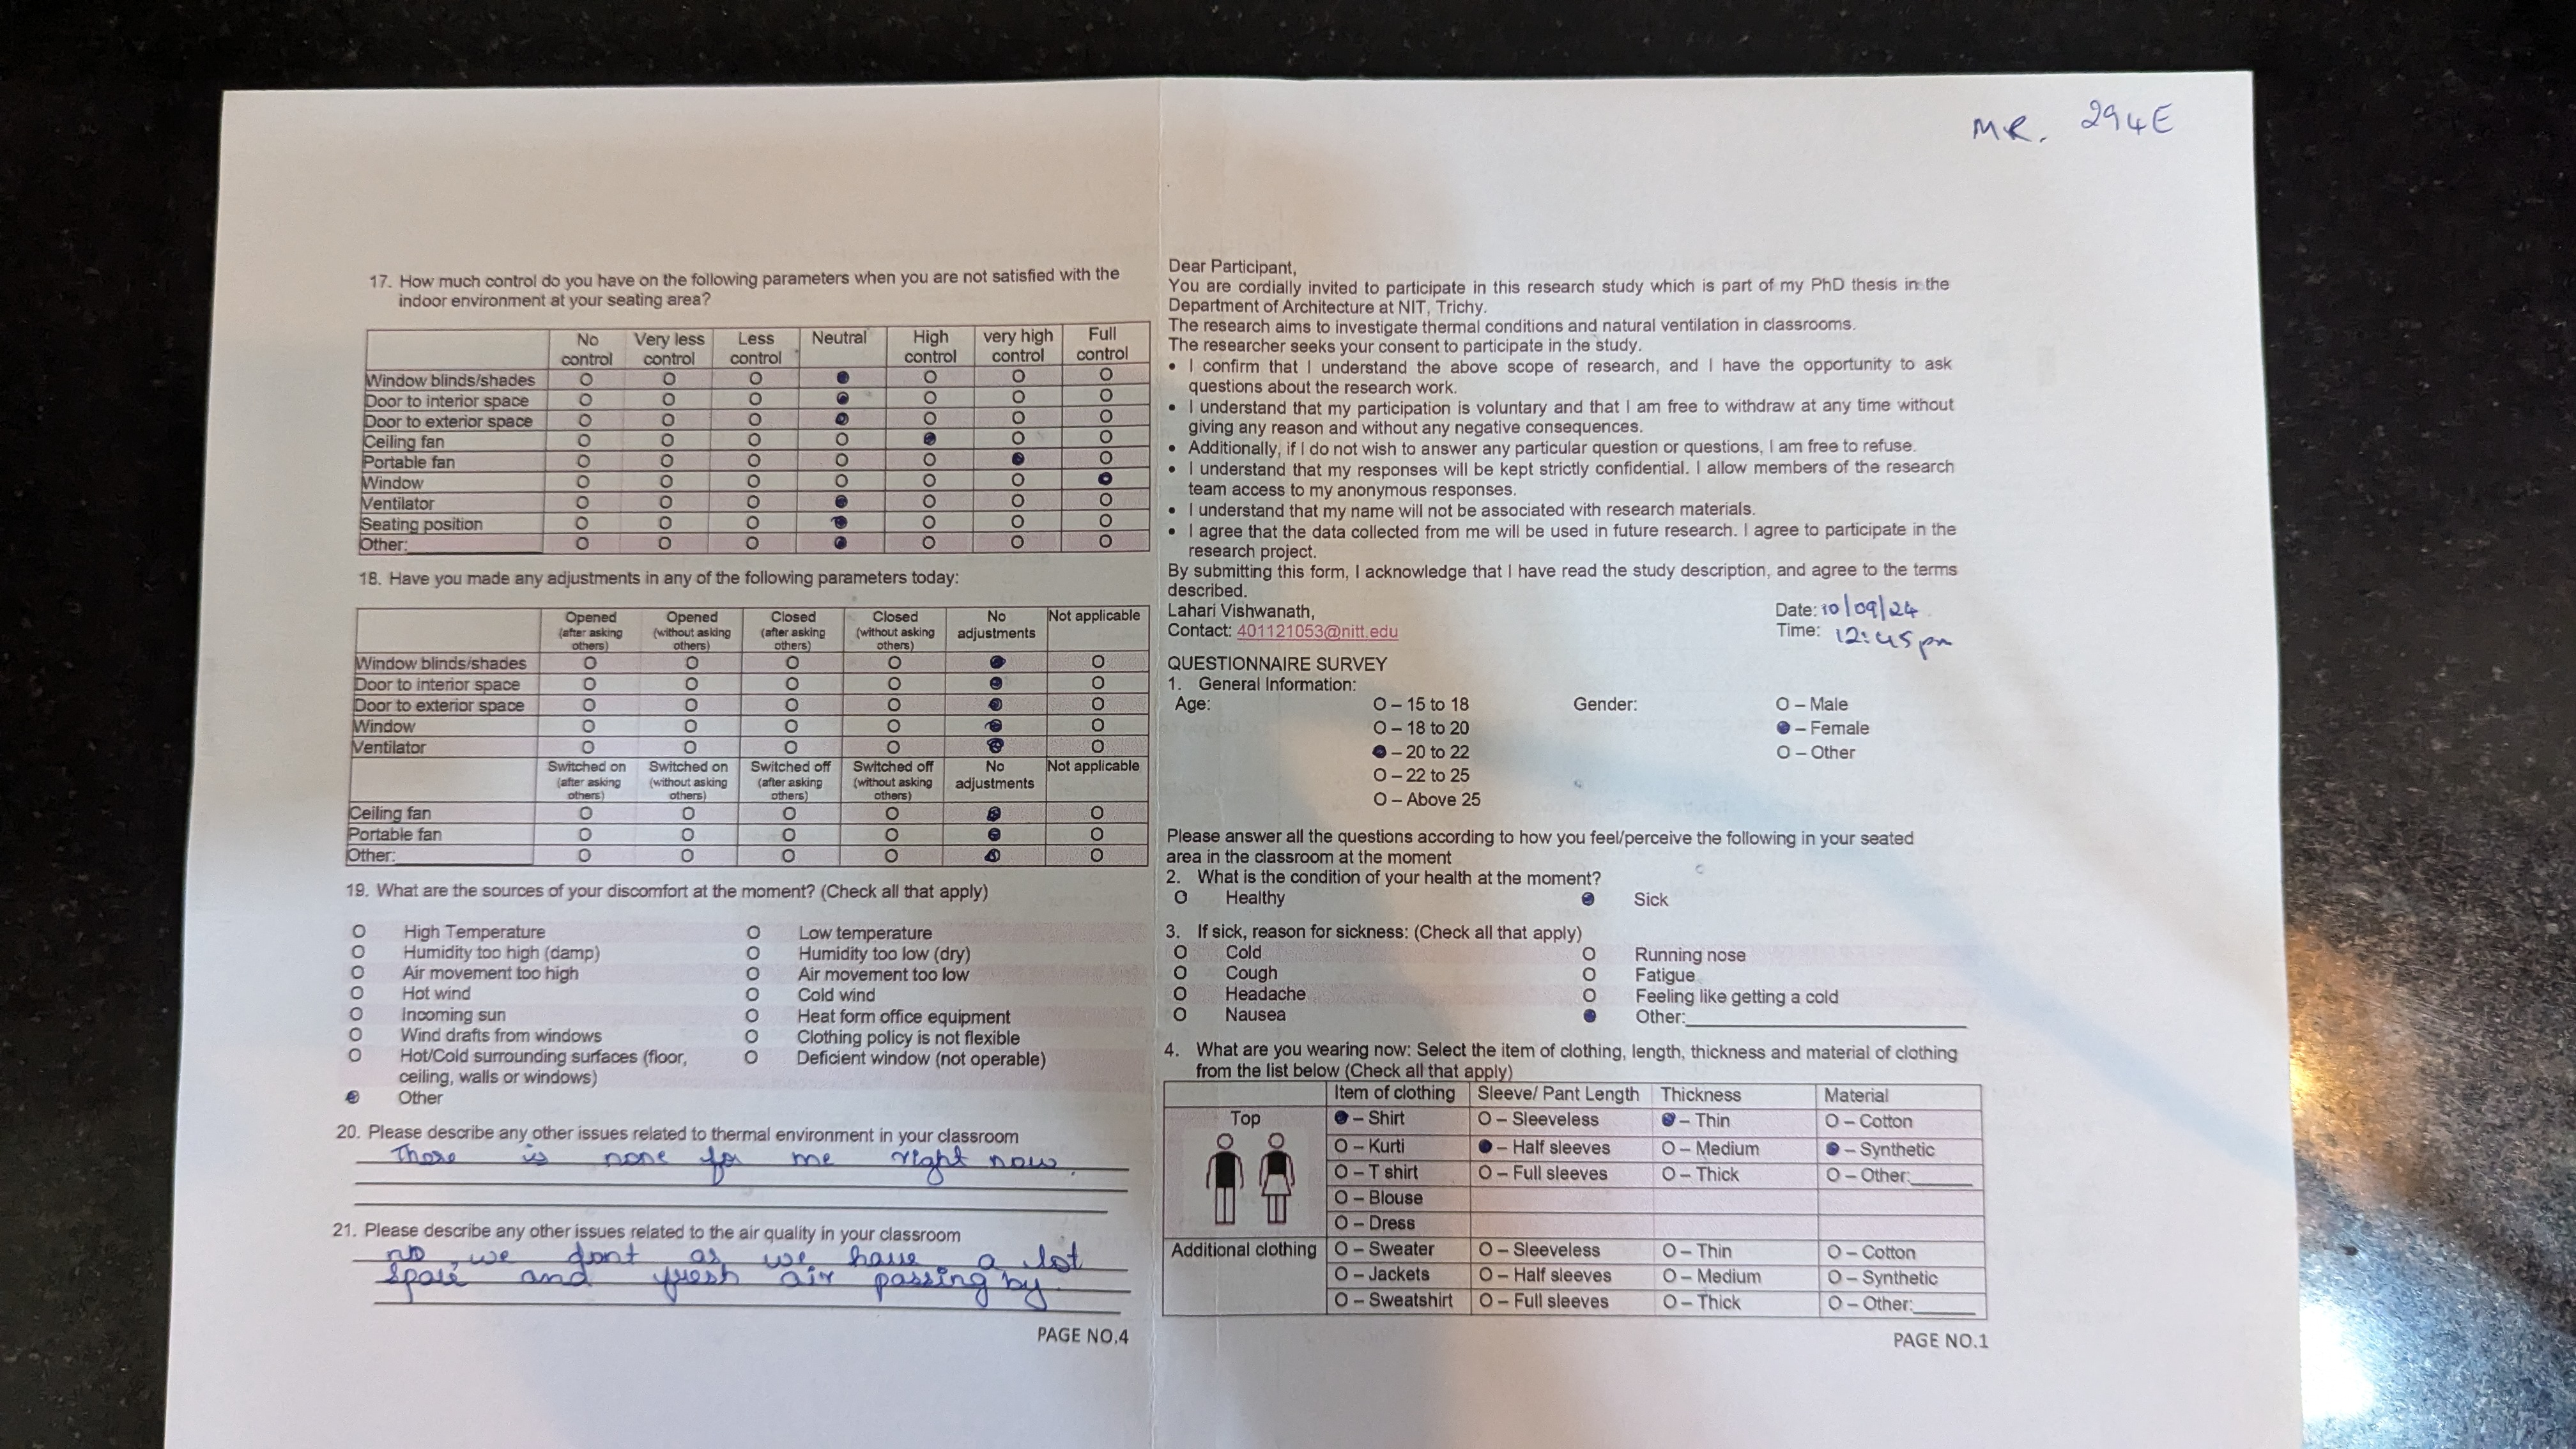 MR. 294E
17. How much control do you have on the following parameters when you are not satisfied with the
indoor environment at your seating area?
No control Very less control Less control Neutral High control very high control Full control
Window blinds/shades O O O ● O O O
Door to interior space O O O ● O O O
Door to exterior space O O O ● O O O
Ceiling fan O O O O ● O O
Portable fan O O O O O ● O
Window O O O O O O ●
Ventilator O O O ● O O O
Seating position O O O ● O O O
Other: O O O ● O O O
18. Have you made any adjustments in any of the following parameters today:
Opened (after asking others) Opened (without asking others) Closed (after asking others) Closed (without asking others) No adjustments Not applicable
Window blinds/shades O O O O ● O
Door to interior space O O O O ● O
Door to exterior space O O O O ● O
Window O O O O ● O
Ventilator O O O O ● O
Switched on (after asking others) Switched on (without asking others) Switched off (after asking others) Switched off (without asking others) No adjustments Not applicable
Ceiling fan O O O O ● O
Portable fan O O O O ● O
Other: O O O O ● O
19. What are the sources of your discomfort at the moment? (Check all that apply)
O High Temperature O Low temperature
O Humidity too high (damp) O Humidity too low (dry)
O Air movement too high O Air movement too low
O Hot wind O Cold wind
O Incoming sun O Heat form office equipment
O Wind drafts from windows O Clothing policy is not flexible
O Hot/Cold surrounding surfaces (floor, O Deficient window (not operable)
ceiling, walls or windows)
● Other
20. Please describe any other issues related to thermal environment in your classroom
There is none for me right now.
21. Please describe any other issues related to the air quality in your classroom
no, we dont as we have a lot
space and fresh air passing by
PAGE NO.4
Dear Participant,
You are cordially invited to participate in this research study which is part of my PhD thesis in the
Department of Architecture at NIT, Trichy.
The research aims to investigate thermal conditions and natural ventilation in classrooms.
The researcher seeks your consent to participate in the study.
• I confirm that I understand the above scope of research, and I have the opportunity to ask
questions about the research work.
• I understand that my participation is voluntary and that I am free to withdraw at any time without
giving any reason and without any negative consequences.
• Additionally, if I do not wish to answer any particular question or questions, I am free to refuse.
• I understand that my responses will be kept strictly confidential. I allow members of the research
team access to my anonymous responses.
• I understand that my name will not be associated with research materials.
• I agree that the data collected from me will be used in future research. I agree to participate in the
research project.
By submitting this form, I acknowledge that I have read the study description, and agree to the terms
described.
Lahari Vishwanath, Date: 10/09/24
Contact: 401121053@nitt.edu Time: 12:45 pm
QUESTIONNAIRE SURVEY
1. General Information:
Age: O – 15 to 18 Gender: O – Male
O – 18 to 20 ● – Female
● – 20 to 22 O – Other
O – 22 to 25
O – Above 25
Please answer all the questions according to how you feel/perceive the following in your seated
area in the classroom at the moment
2. What is the condition of your health at the moment?
O Healthy ● Sick
3. If sick, reason for sickness: (Check all that apply)
O Cold O Running nose
O Cough O Fatigue
O Headache O Feeling like getting a cold
O Nausea ● Other:
4. What are you wearing now: Select the item of clothing, length, thickness and material of clothing
from the list below (Check all that apply)
Item of clothing Sleeve/ Pant Length Thickness Material
Top ● – Shirt O – Sleeveless ● – Thin O – Cotton
O – Kurti ● – Half sleeves O – Medium ● – Synthetic
O – T shirt O – Full sleeves O – Thick O – Other:
O – Blouse
O – Dress
Additional clothing O – Sweater O – Sleeveless O – Thin O – Cotton
O – Jackets O – Half sleeves O – Medium O – Synthetic
O – Sweatshirt O – Full sleeves O – Thick O – Other:
PAGE NO.1